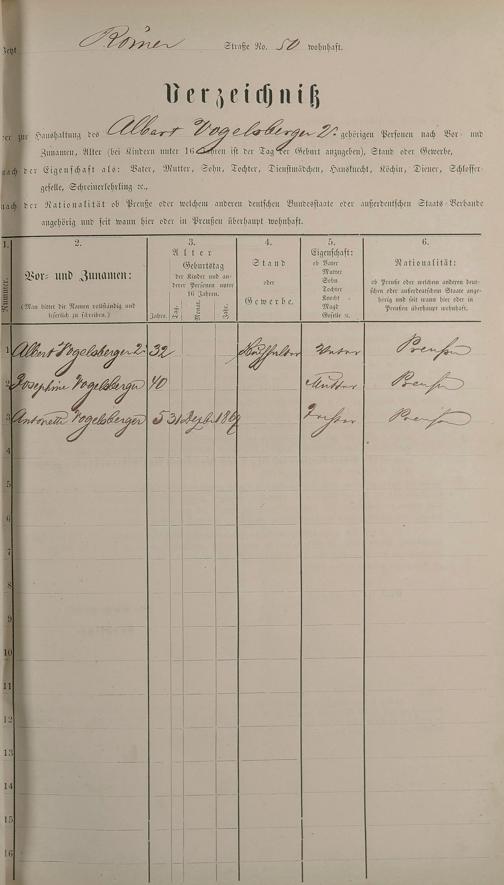 Römer Straße No. 50 wohnhaft.
Verzeichniß
der zur Haushaltung des Albert Vogelsberger 2r gehörigen Personen nach Vor- und
Zunamen, Alter (bei Kindern unter 16 Jahren ist der Tag der Geburt anzugeben), Stand oder Gewerbe,
nach der Eigenschaft als: Vater, Mutter, Sohn, Tochter, Dienstmädchen, Hausknecht, Köchin, Diener, Schlosser-
geselle, Schreinerlehrling ꝛc.,
nach der Nationalität ob Preuße oder welchem anderen deutschen Bundesstaate oder außerdeutschen Staats-Verbande
angehörig und seit wann hier oder in Preußen überhaupt wohnhaft.
1.
Nummer.
2.
Vor- und Zunamen:
(Man bittet die Namen vollständig und
leserlich zu schreiben.)
3.
Alter
Geburtstag
der Kinder und an-
derer Personen unter
16 Jahren.
Jahre. Tag. Monat. Jahr.
4.
Stand
oder
Gewerbe.
5.
Eigenschaft:
ob Vater
Mutter
Sohn
Tochter
Knecht
Magd
Geselle ꝛc.
6.
Nationalität:
ob Preuße oder welchem anderen deut-
schen oder außerdeutschen Staate ange-
hörig und seit wann hier oder in
Preußen überhaupt wohnhaft.
1 Albert Vogelsberger 2r 32 Buchhalter Vater Preußen
2 Josephine Vogelsberger 40 Mutter Preußen
3 Antonette Vogelsberger 5 31 Dezbr 1869 Tochter Preußen
4
5
6
7
8
9
10
11
12
13
14
15
16